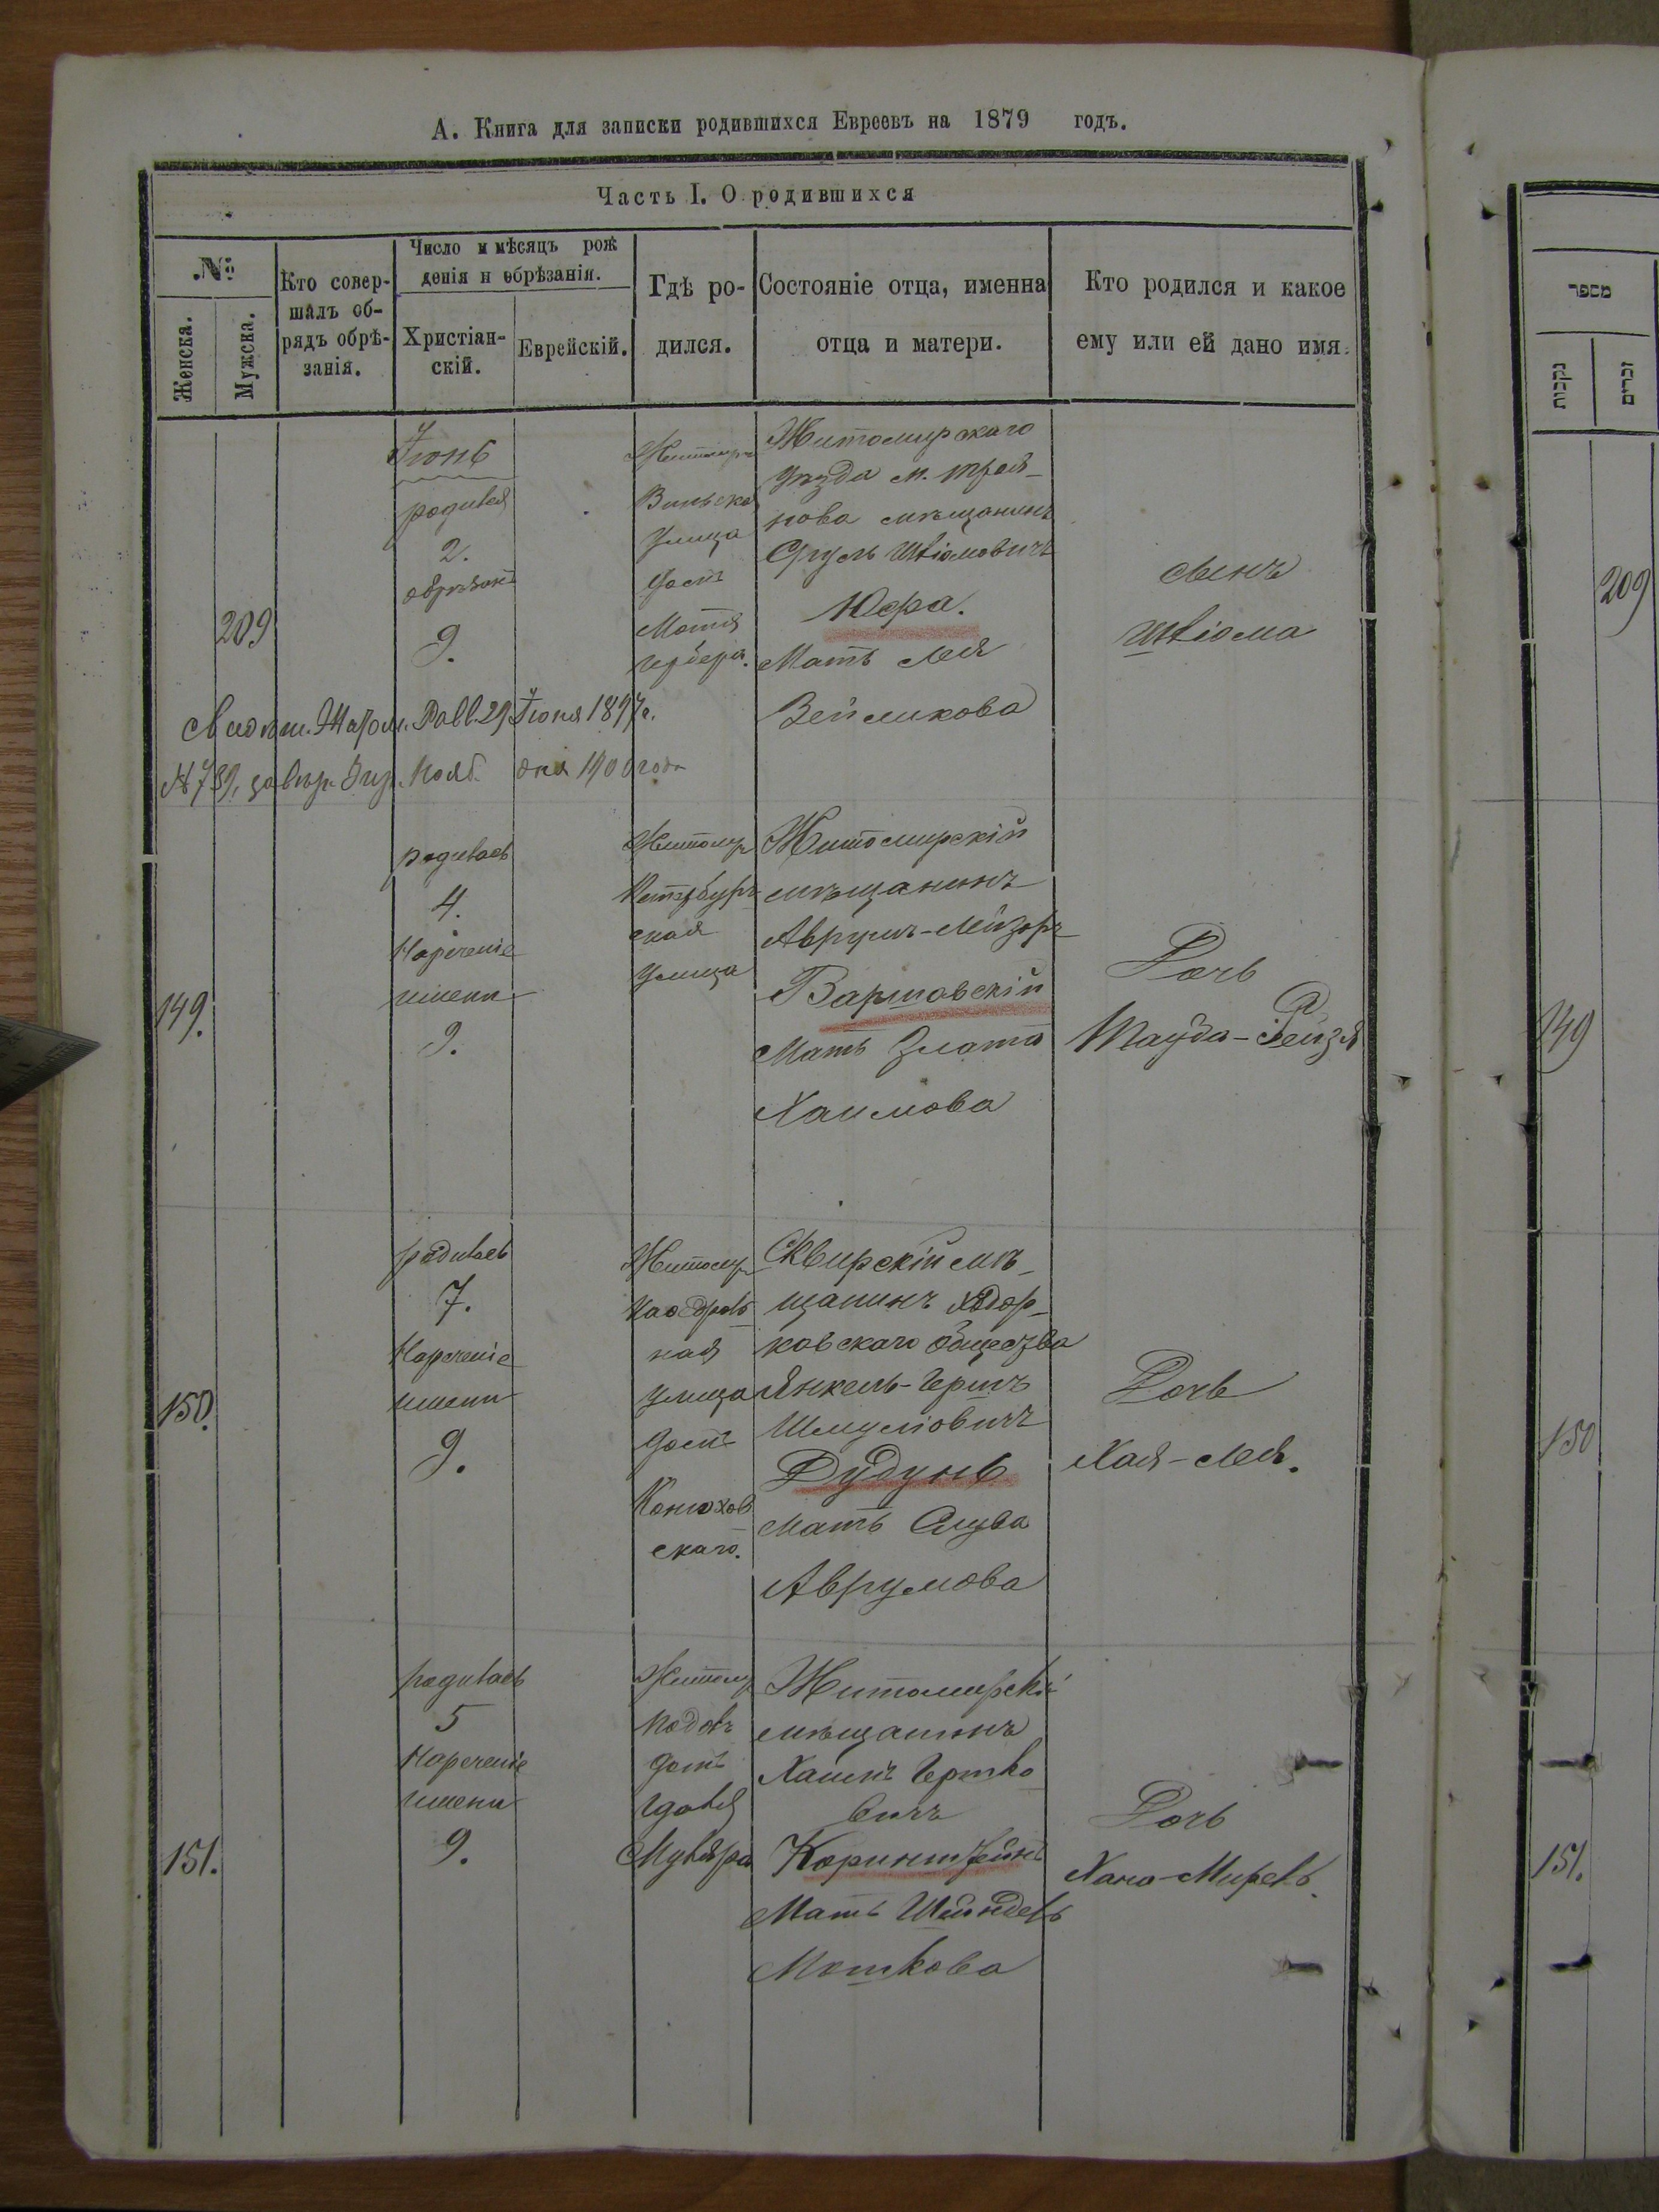 А. Книга для записки родившихся Евреевъ на 1879 годъ.
Часть I. О родившихся
№
Женска.
Мужска.
Кто совер-
шалъ об-
рядъ обрѣ-
занія.
Число и мѣсяцъ рож
денія и обрѣзанія.
Христіан-
скій.
Еврейскій.
Гдѣ ро-
дился.
Состояніе отца, именна
отца и матери.
Кто родился и какое
ему или ей дано имя.
209
Іюнь
родился
2.
обрѣзанъ
9.
Житомиръ
Вильска
улица
домъ
Мотя
Житомирскаго
уѣзда м. Троя-
нова мѣщанинъ
Сруль Шліомовичъ
Юфа.
Мать Лея
Зейликова
сынъ
Шліома
Іюня 1897г.
№ 789,
1900 года
149.
родилась
4.
Нареченіе
имени
9.
Житомир
Петербург
ская
улица
Житомирскій
мѣщанинъ
Аврумъ-Лейзоръ
Варшавскій
Мать Злата
Хаимова
Дочь
Тауба-Рейзя
150.
родилась
7.
Нареченіе
имени
9.
Житомир
ная
улица
домъ
Конюхов
скаго.
Сквирскій мѣ-
щанинъ Ходор-
ковскаго общества
Янкель-Гершъ
Шмуліовичъ
Дудунь
Мать Слува
Аврумова
Дочь
Хая-Лея.
151.
родилась
5
Нареченіе
имени
9.
Житомир
домъ
Муляра
Житомирскій
мѣщанинъ
Хаимъ Гершко
вичъ
Коринштейнъ
Мать Шейндель
Мошкова
Дочь
Хана-Мирель.
מספר
נקבות
זכרים
209
149
150
151.